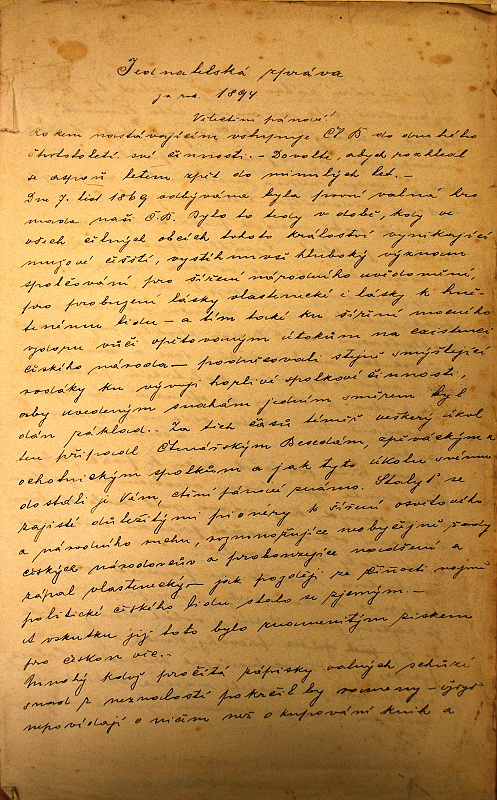 Jednatelská zpráva
za rok 1894
Všectění pánové!
Rokem nastávajícím vstupuje Čt. B do druhého
čtvrtstoletí své činnosti. – Dovolte, abych rozhledl
se aspoň letem zpět do minulých let. –
Dne 7. list 1869 odbývána byla první valná hro
mada naší Č.B. Bylo to tedy v době, kdy ve
všech čilných obcích tohoto království vynikající
mužové čeští, vystihnuvše hluboký význam
spolčování pro šíření národního uvědomění,
pro probuzení lásky vlastenecké i lásky k hně
tenému lidu – a tím také ku šíření mocného
vzdoru vůči opětovaným útokům na existenci
českého národa – podněcovali stejně smýšlející
rodáky ku vývoji horlivé spolkové činnosti,
aby uvedeným snahám jedním směrem byl
dán základ. Za těch časů téměř veškerý úkol
ten připadl Čtenářským Besedám, zpěváckým a
ochotnickým spolkům a jak tyto úkolu svému
dostáli je Vám, ctění pánové známo. Stalyť se
zajisté důležitými pionéry k šíření osvětového
a národního ruchu, rozmnožujíce neobyčejně řady
českých národovců a probouzejíce nadšení a
zápal vlastenecký – jak později ze činnosti
politické českého lidu stalo se zjevným. –
A vskutku již toto bylo znamenitým ziskem
pro českou věc. –
Mnohý když pročítá zápisky valných schůzí
snad z neznalosti pokrčil by rameny –
nepovídají o ničím než o kupování knih a